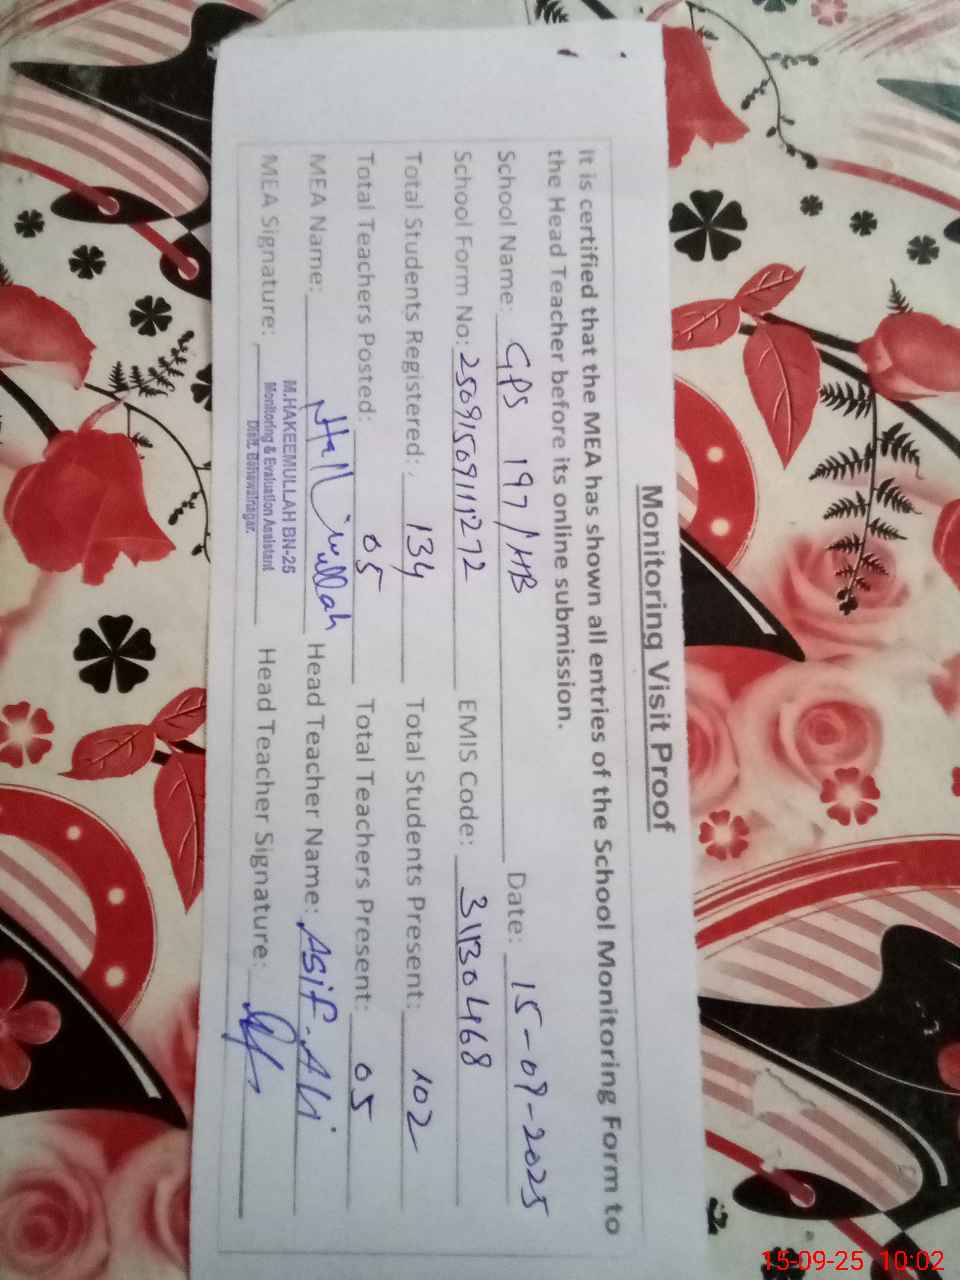 Monitoring Visit Proof
It is certified that the MEA has shown all entries of the School Monitoring Form to
the Head Teacher before its online submission.
School Name: GPS 197/HB Date: 15-09-2025
School Form No: EMIS Code: 31130468
Total Students Registered: 134 Total Students Present: 102
Total Teachers Posted: 05 Total Teachers Present: 05
MEA Name: Head Teacher Name: Asif Ali
M.HAKEEMULLAH BN-25
Monitoring & Evaluation Assistant
Distt. Bahawalnagar.
MEA Signature: Head Teacher Signature:
15-09-25 10:02